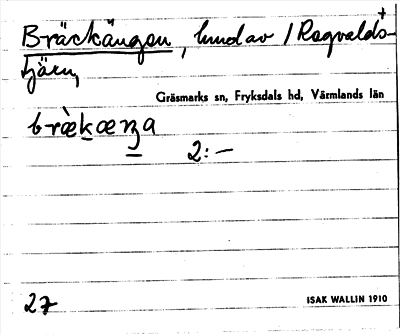 Bräckängen, hmd av 1 Ragvalds-
tjärn,
Gräsmarks sn, Fryksdals hd, Värmlands län
2:—
27
ISAK WALLIN 1910